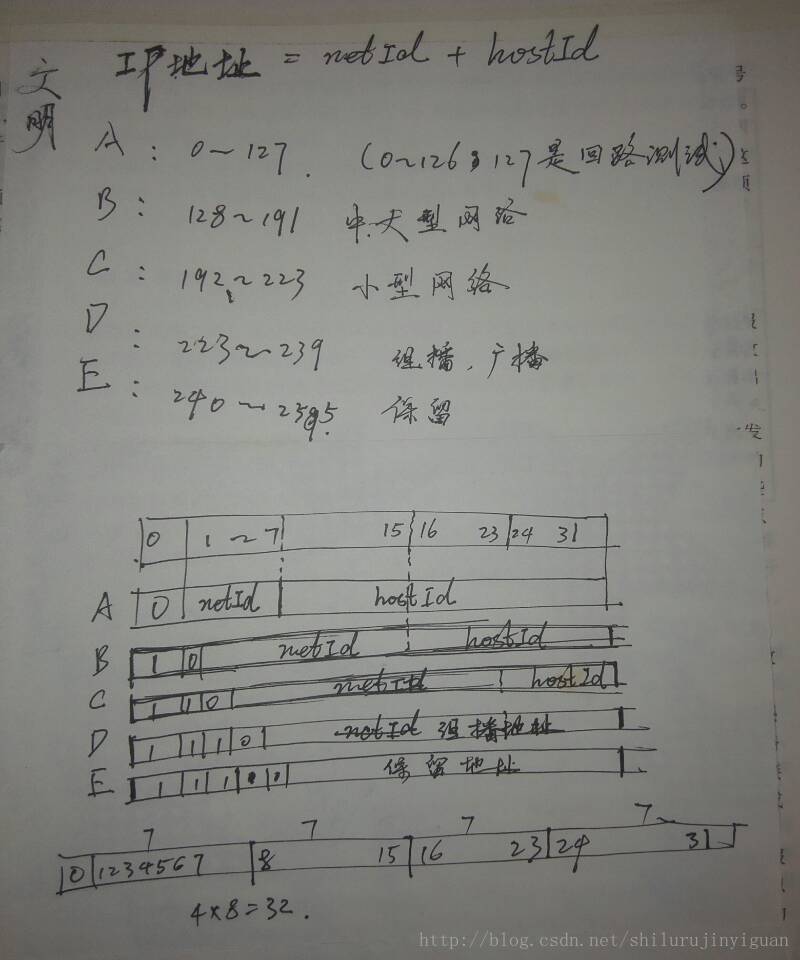 文明
IP地址 = netId + hostId
A: 0~127. (0~126;127是回路测试)
B: 128~191 中.大型网络
C: 192~223 小型网络
D: 223~239 组播,广播
E: 240~255 保留
0 1~7 15 16 23 24 31
A 0 netId hostId
B 1 0 netId hostId
C 1 1 0 netId hostId
D 1 1 1 0 netId 组播地址
E 1 1 1 0 保留地址
7 7 7 7
0 1234567 8 15 16 23 24 31
4×8=32.
http://blog.csdn.net/shilurujinyiguan